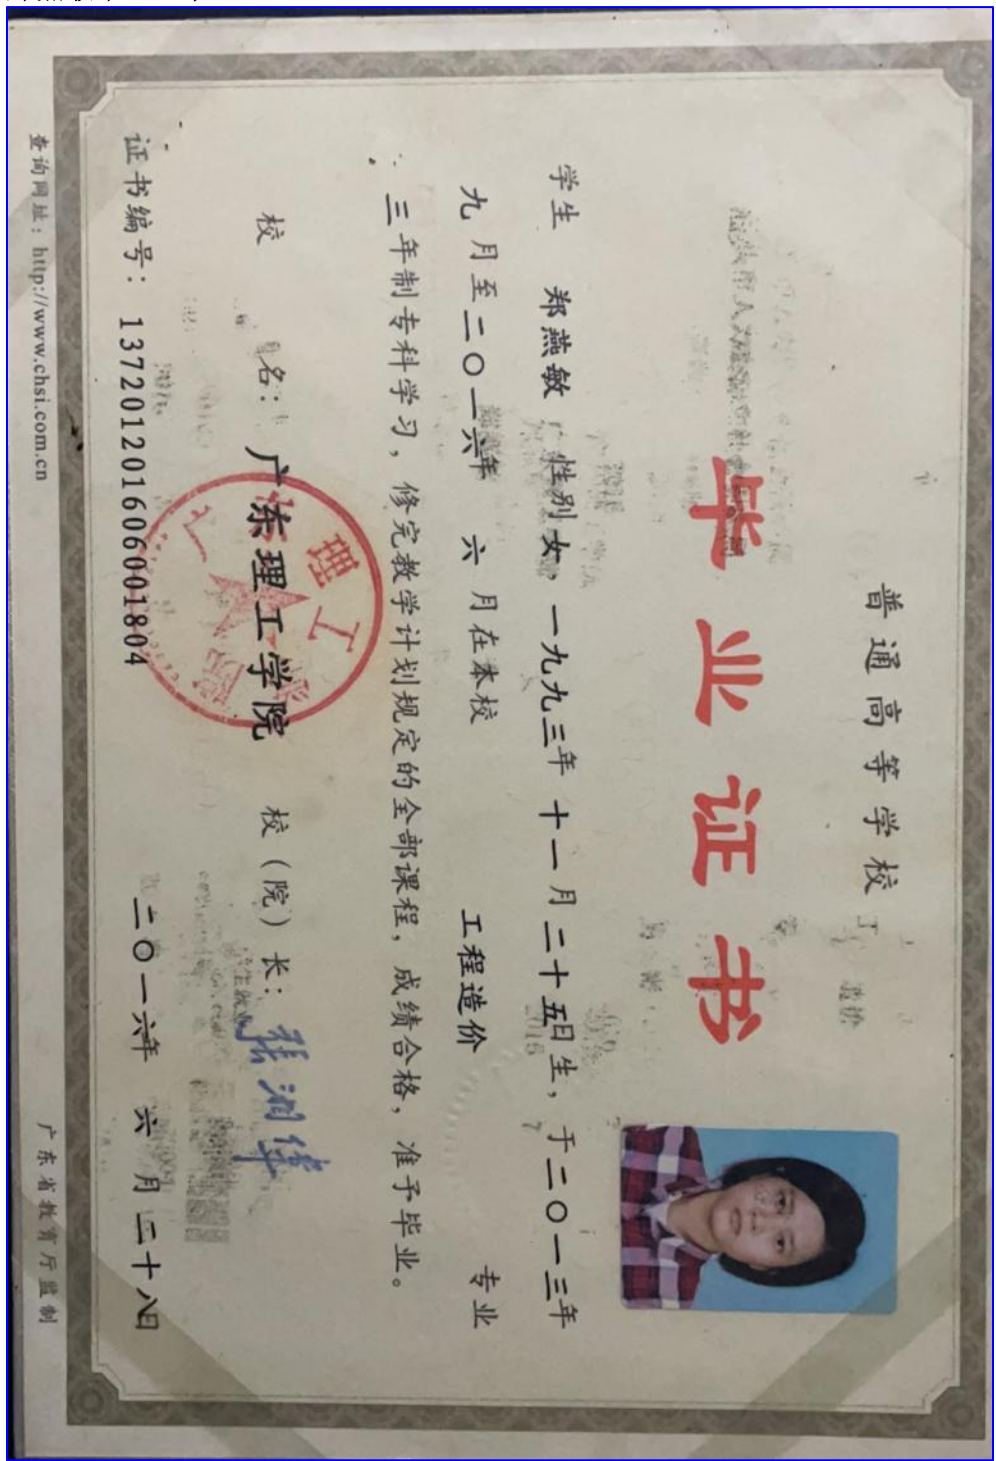 普通高等学校
毕业证书
学生 郑燕敏 性别女,一九九三年 十一 月 二十五日生,于二〇一三年
九 月至二〇一六年 六 月在本校 工程造价 专业
三年制专科学习,修完教学计划规定的全部课程,成绩合格,准予毕业。
校 名:广东理工学院 校(院)长:
证书编号:137201201606001804 二〇一六年 六 月 二十八日
查询网址:http://www.chsi.com.cn 广东省教育厅监制